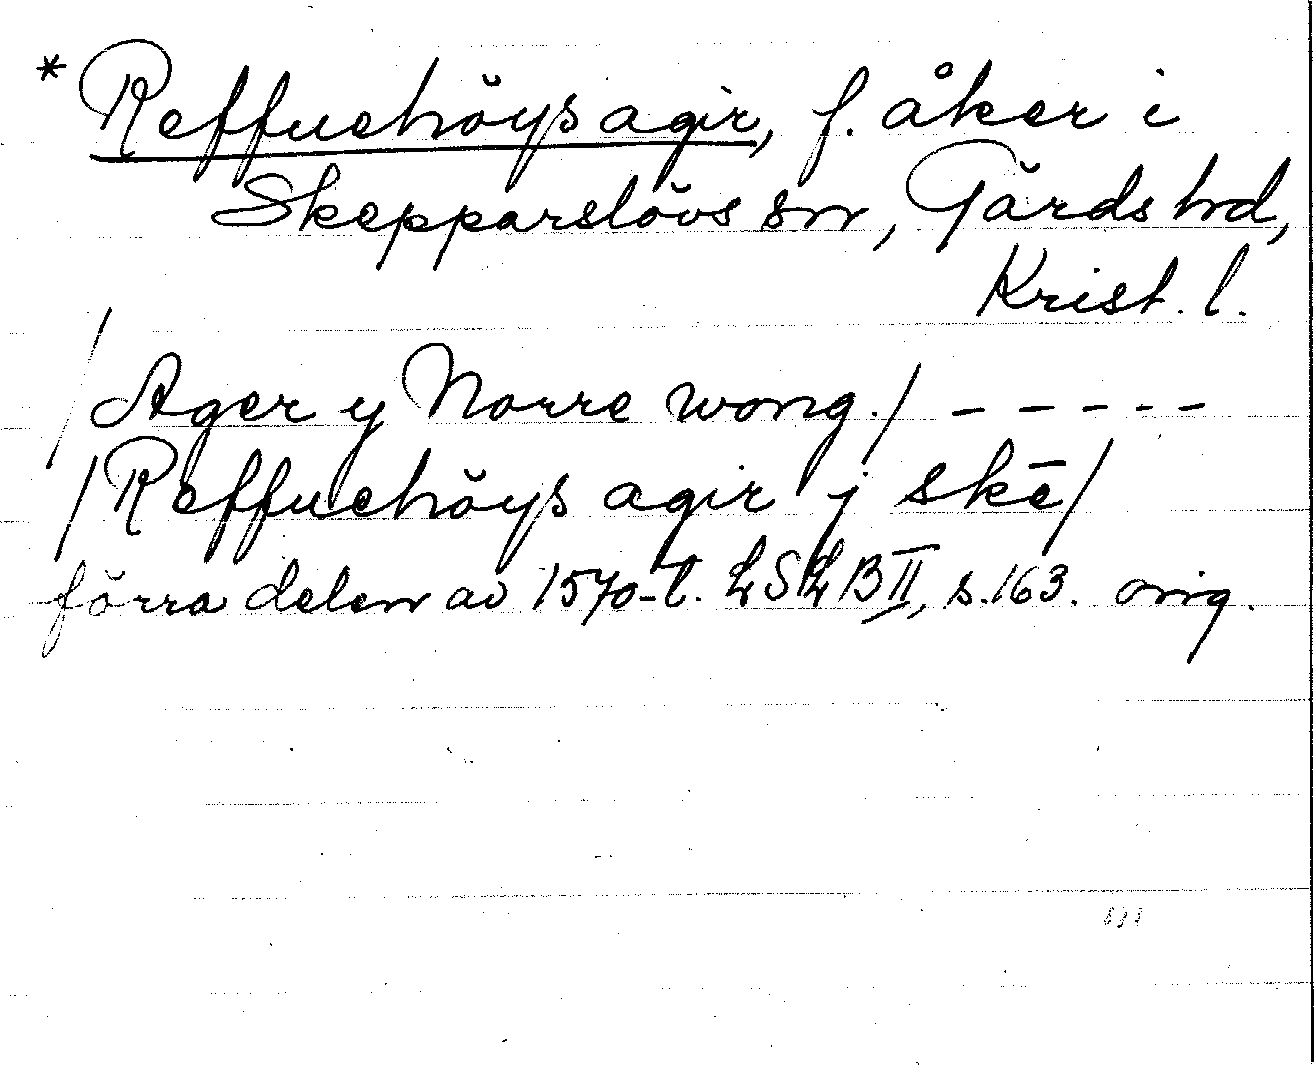 * Reffuehöys agir, f. åker i
Skepparslövs sn, Gärds hd,
Krist. l.
/Ager y Norre wong./ - - - - -
/Reffuehöys agir y skē/
förra delen av 1570-t. LSLB II, s. 163. orig.